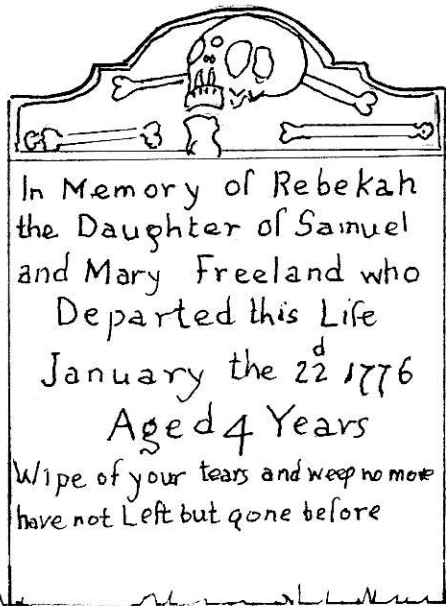 In Memory of Rebekah
the Daughter of Samuel
and Mary Freeland who
Departed this Life
January the 22d 1776
Aged 4 Years
Wipe of your tears and weep no more
have not Left but gone before